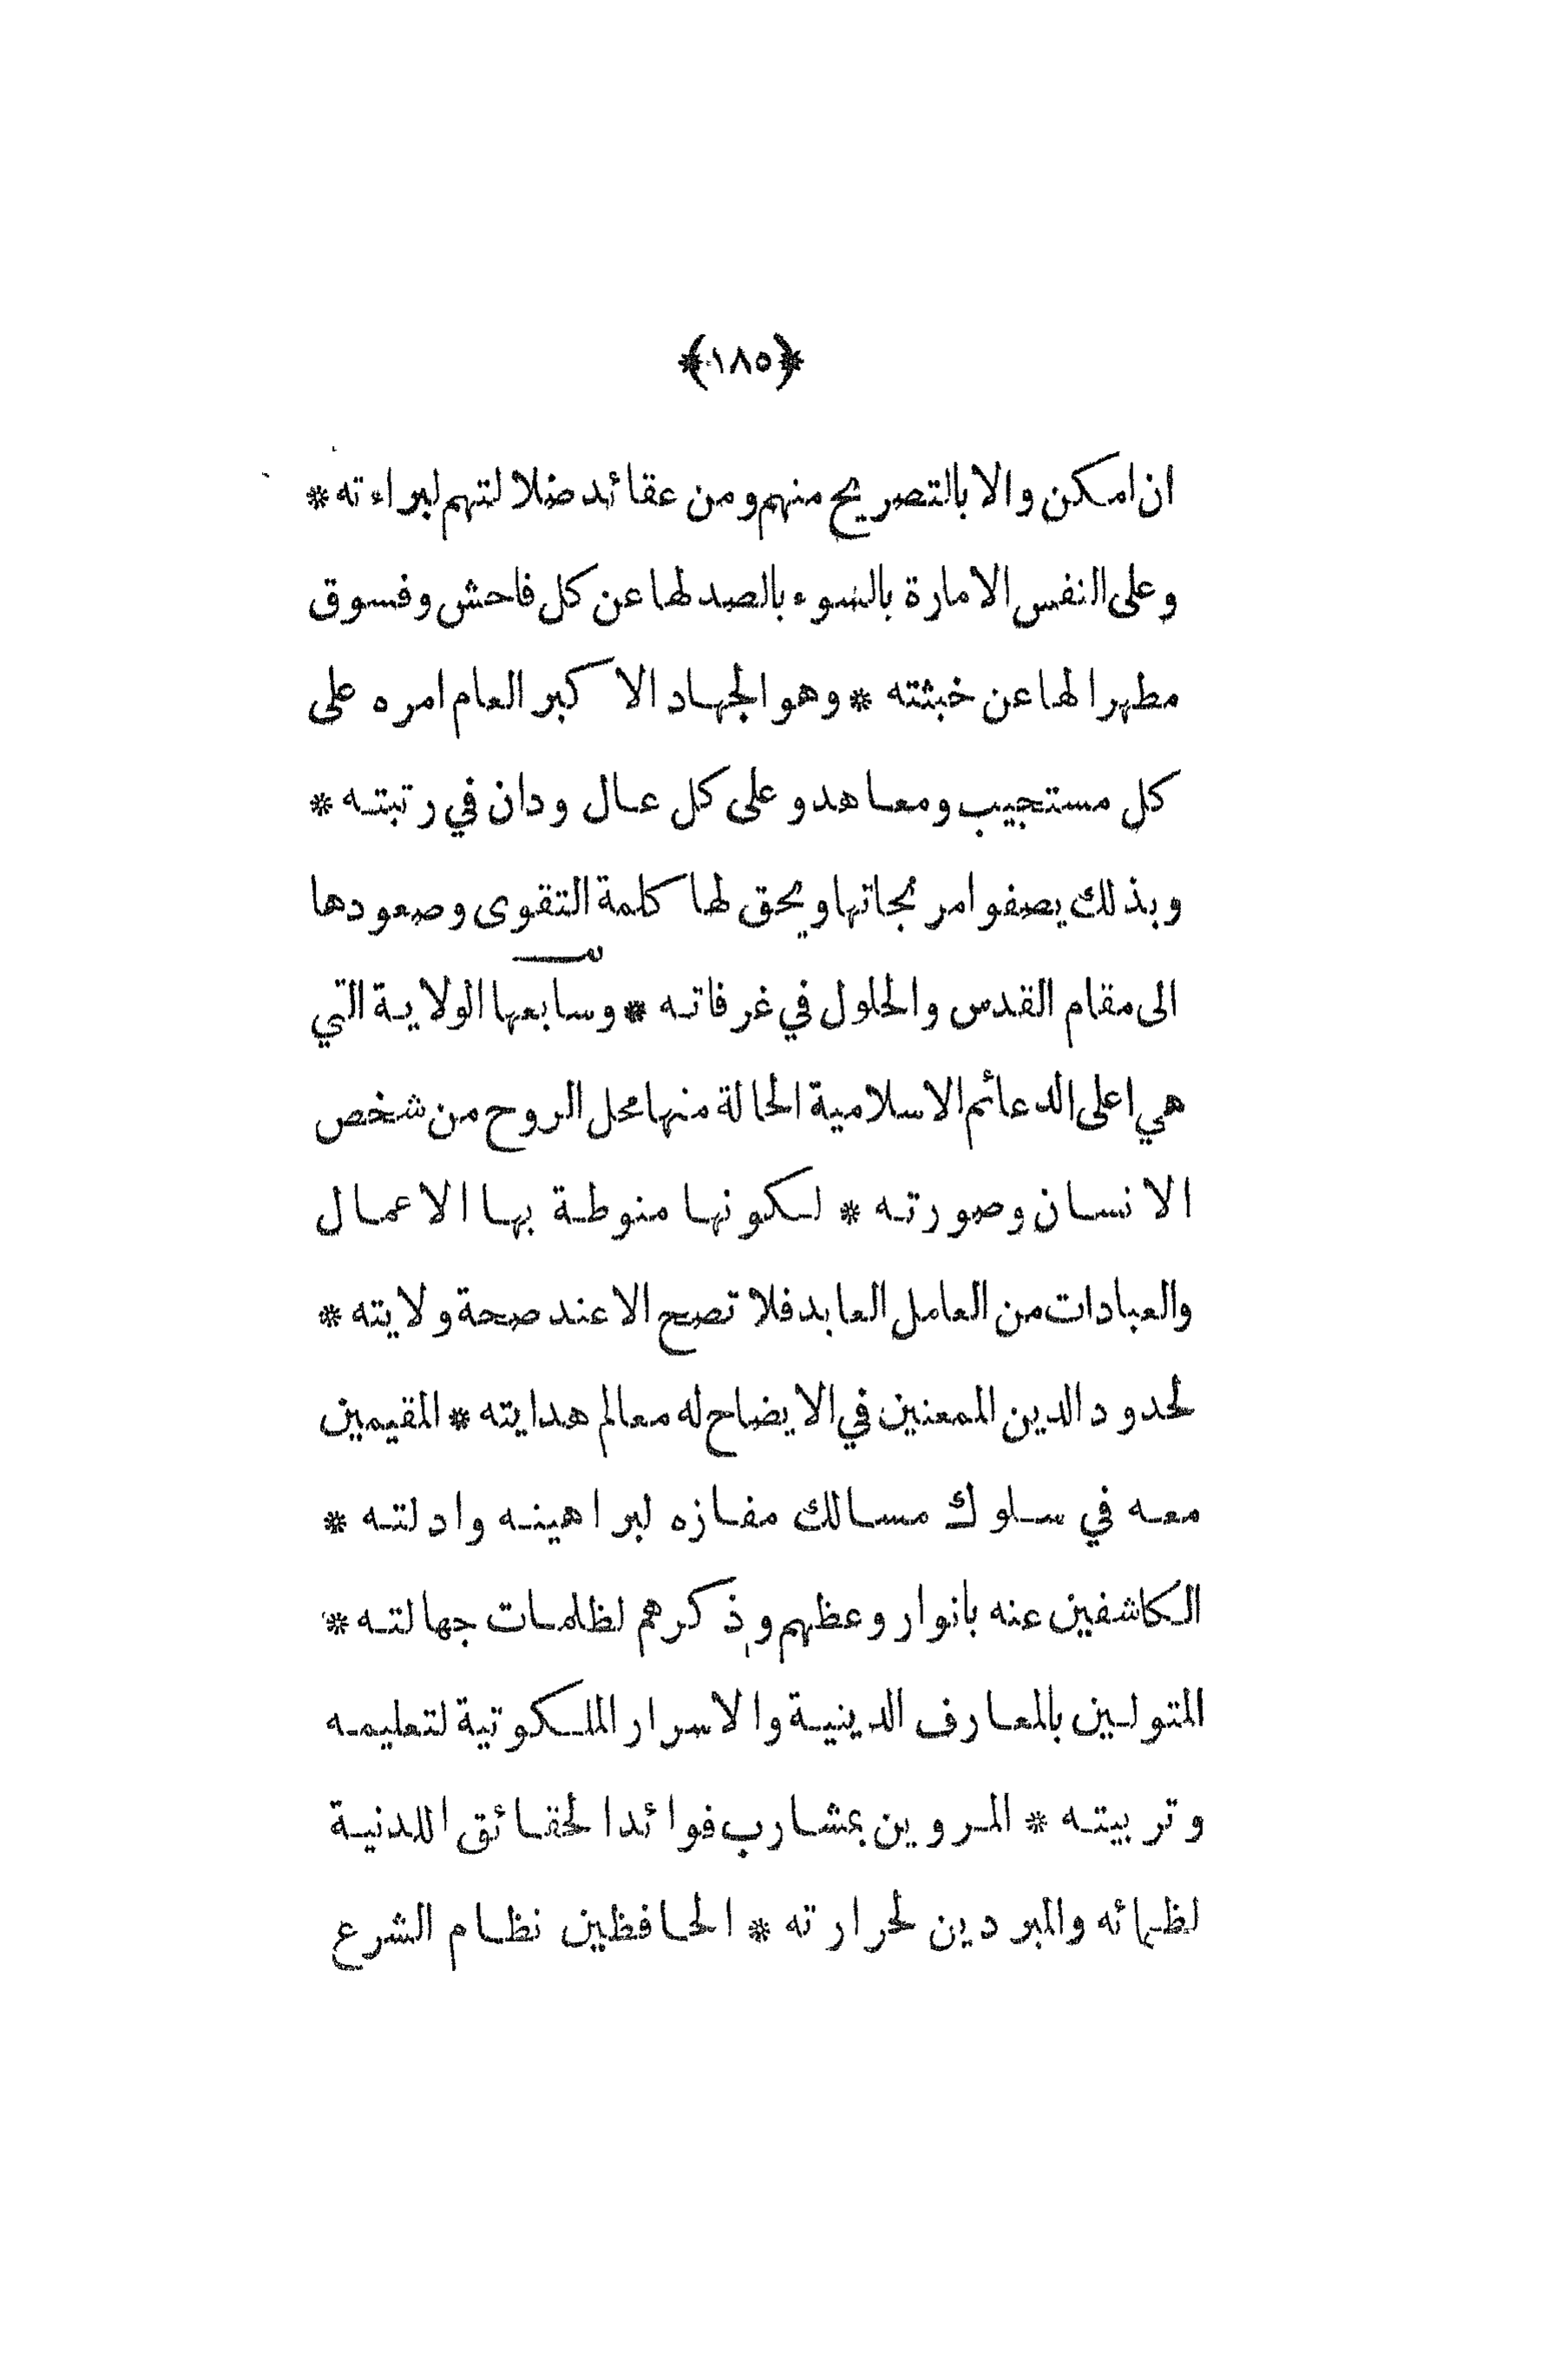 ﴿١٨٥﴾
ان امكن والا بالتصريح منهم ومن عقائد ضلالتهم لبراءته *
وعلى النفس الامارة بالسوء بالصد لها عن كل فاحش وفسوق
مطهرا لها عن خبثته * وهو الجهاد الاكبر العام امره على
كل مستجيب ومعاهد وعلى كل عال ودان في رتبته *
وبذلك يصفو امر نجاتها ويحق لها كلمة التقوى وصعودها
الى مقام القدس والحلول في غرفاته * وسابعها الولاية التي
هي اعلى الدعائم الاسلامية الحالة منها محل الروح من شخص
الانسان وصورته * لكونها منوطة بها الاعمال
والعبادات من العامل العابد فلا تصح الا عند صحة ولايته *
لحدود الدين الممعنين في الايضاح له معالم هدايته * المقيمين
معه في سلوك مسالك مفازه لبراهينه وادلته *
الكاشفين عنه بانوار وعظهم وذكرهم لظلمات جهالته *
المتولين بالمعارف الدينية والاسرار الملكوتية لتعليمه
وتربيته * المروين بمشارب فوائد الحقائق اللدنية
لظمائه والمبردين لحرارته * الحافظين نظام الشرع